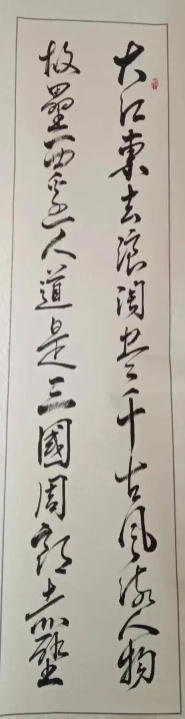 大江東去浪淘盡千古風流人物
故壘西邊人道是三國周郎赤壁